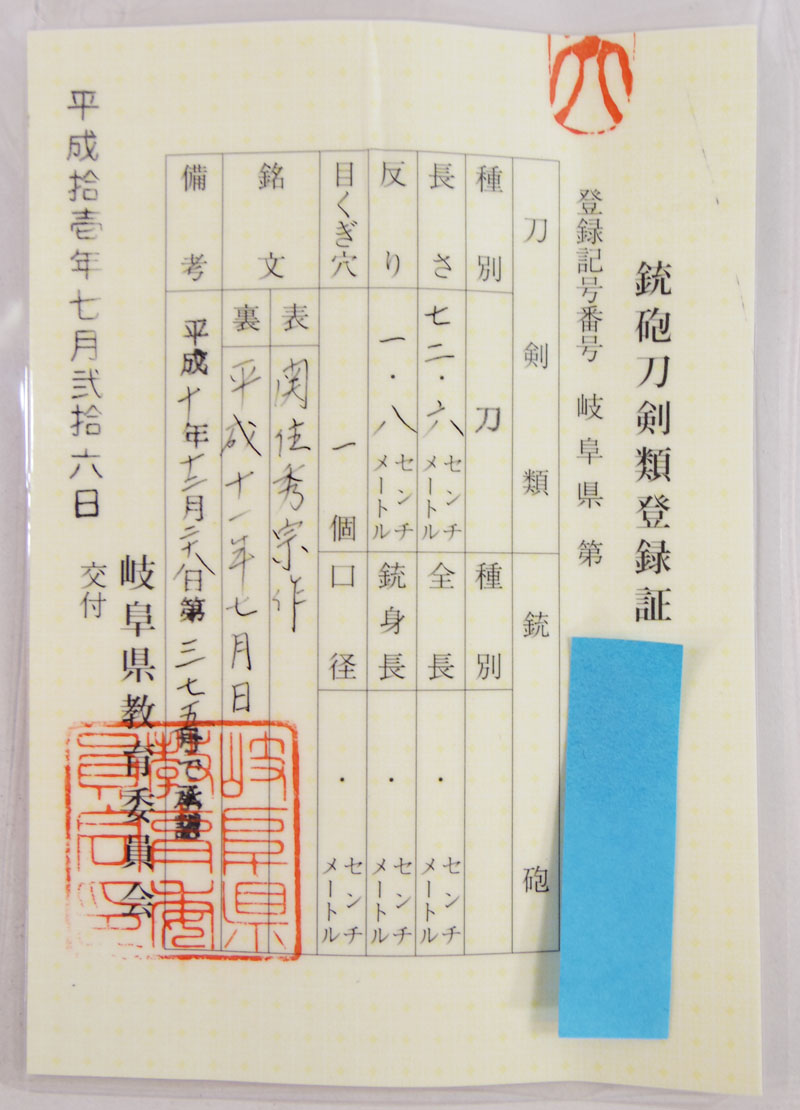 銃砲刀剣類登録証
登録記号番号 岐阜県 第
刀剣類
銃砲
種別 刀
長さ 七二・六 センチメートル
反り 一・八 センチメートル
目くぎ穴 一個
銘文
表 関住秀宗作
裏 平成十一年七月日
備考 平成十年十二月二十八日第三七五号で承認
種別
全長 ・ センチメートル
銃身長 ・ センチメートル
口径 ・ センチメートル
平成拾壱年七月弐拾六日
交付
岐阜県教育委員会